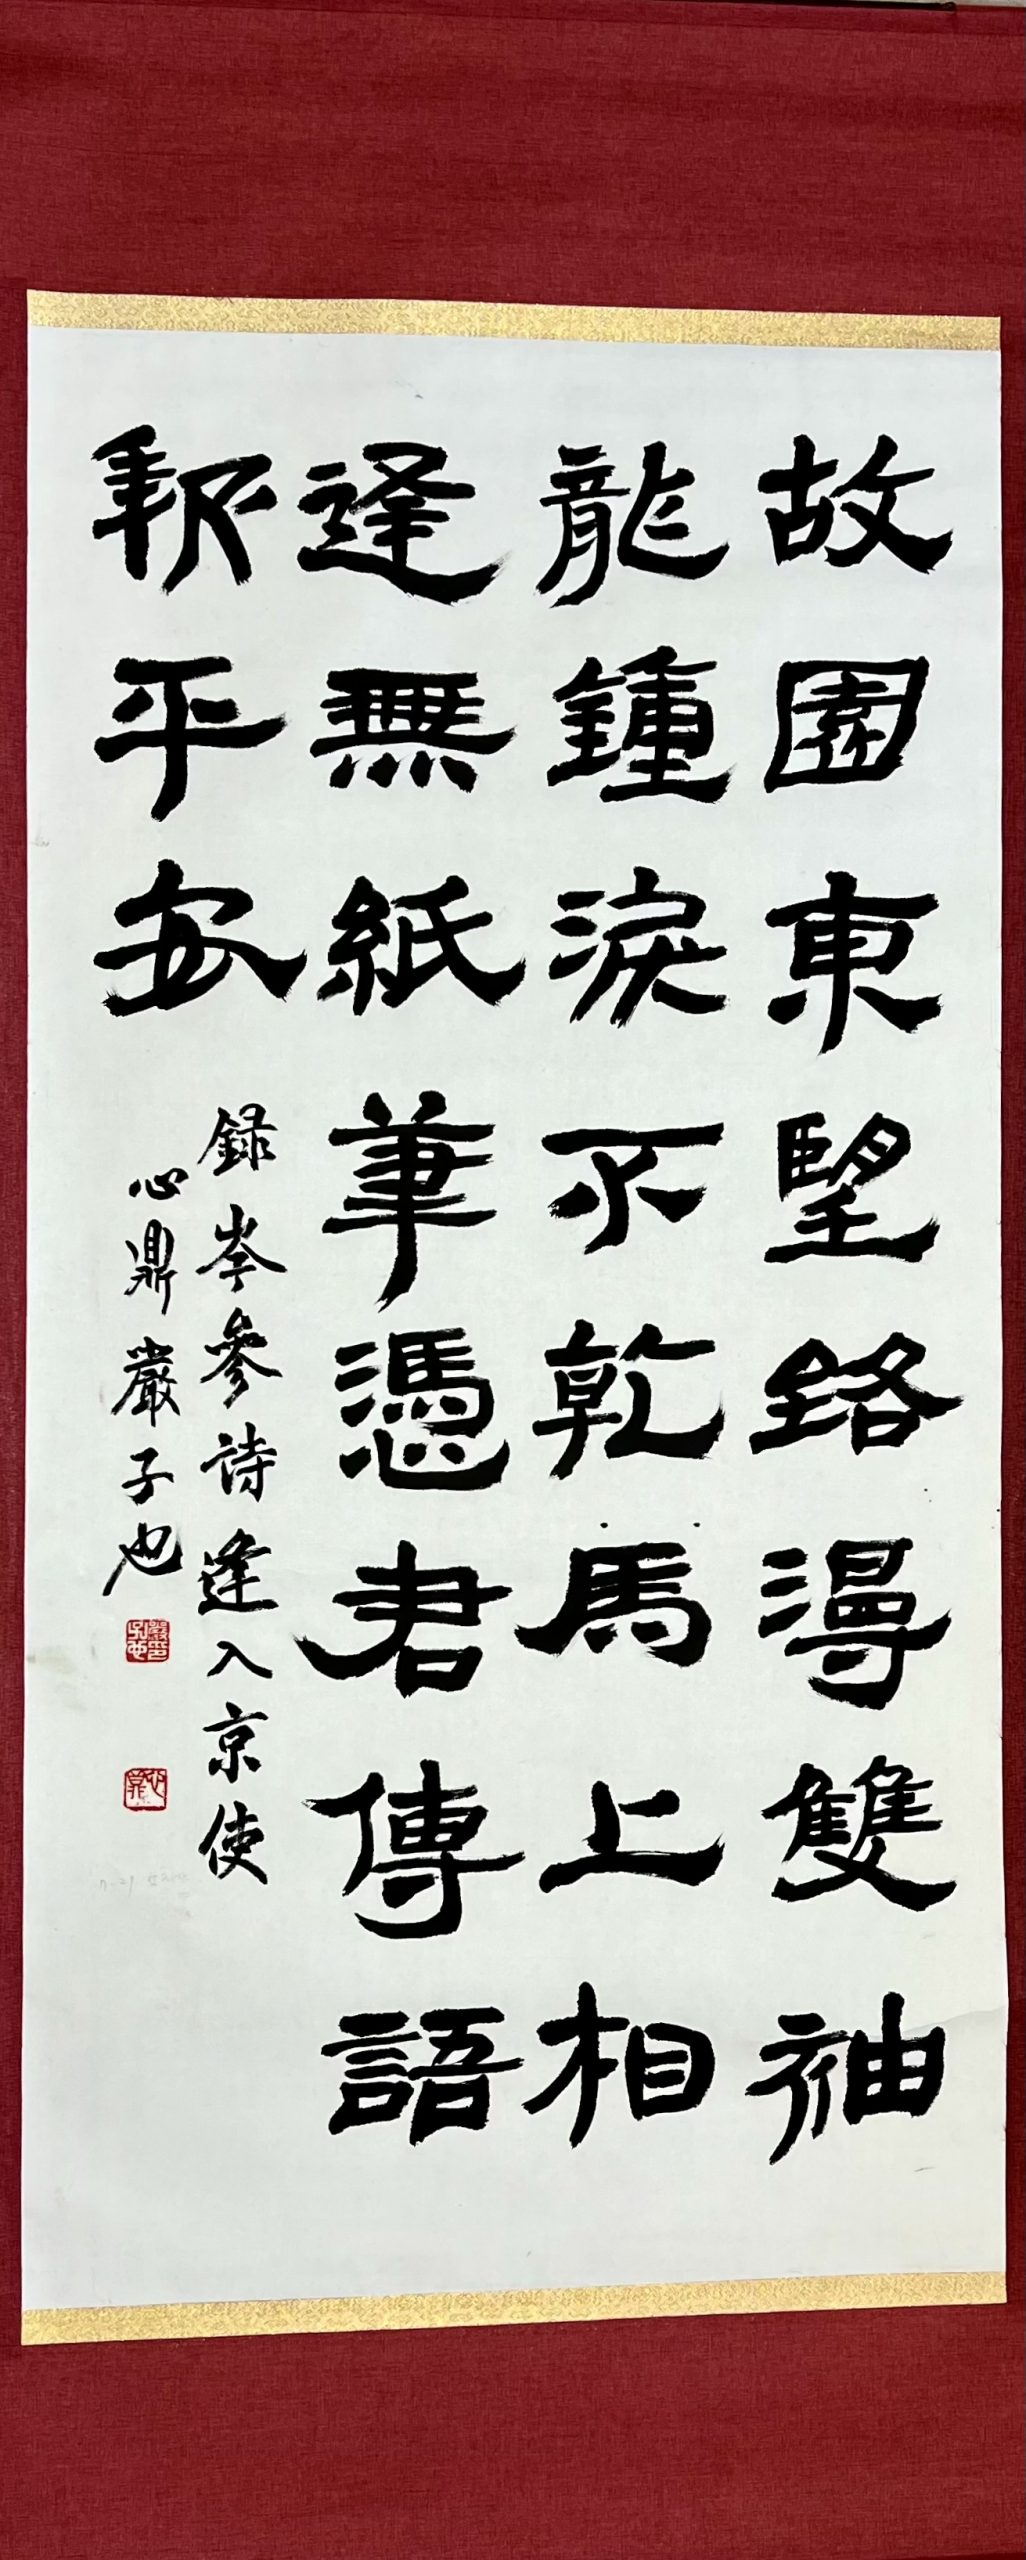 故園東望路漫雙袖
龍鍾淚不乾馬上相
逢無紙筆憑君傳語
報平安
録岑參詩逢入京使
心鼎嚴子也